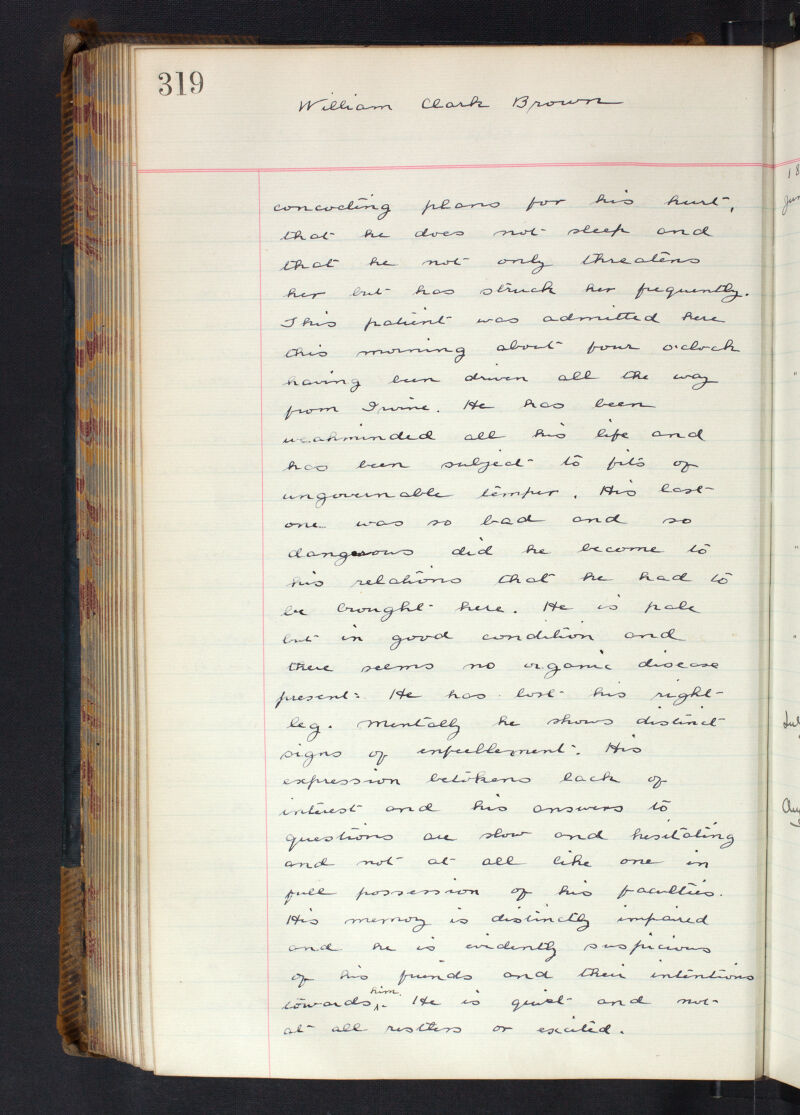 319
William Clark Brown
concocting plans for his hurt,
that he does not sleep and
that he not only threatens
her but has struck her frequently.
This patient was admitted here
this morning about four o'clock
having been driven all the way
from Irvine. He has been
weakminded all his life and
has been subject to fits of
ungovernable temper. His last
one was so bad and so
dangerous did he become to
his relations that he had to
be brought here. He is pale
but in good condition and
there seems no organic disease
present. He has lost his right
leg. Mentally he shows distinct
signs of enfeeblement. His
expression betokens lack of
interest and his answers to
questions are slow and hesitating
and not at all like one in
full possession of his faculties.
His memory is distinctly impaired
and he is evidently suspicious
of his friends and their intentions
towards him. He is quiet and not
at all restless or excited.
18